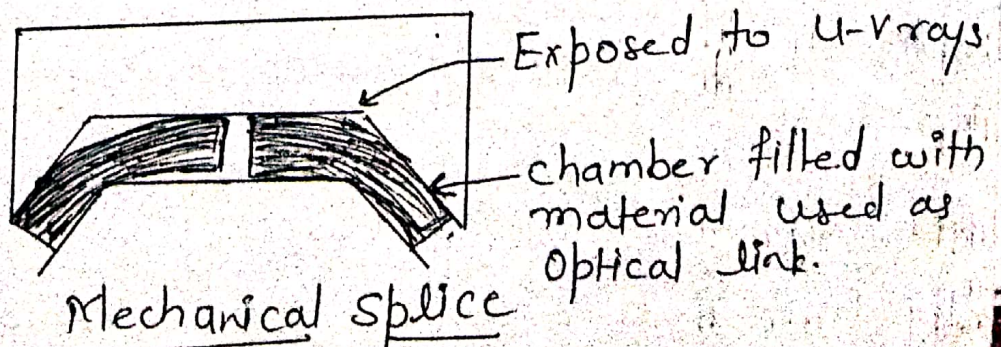 Exposed to U-V rays
chamber filled with
material used as
Optical link.
Mechanical Splice